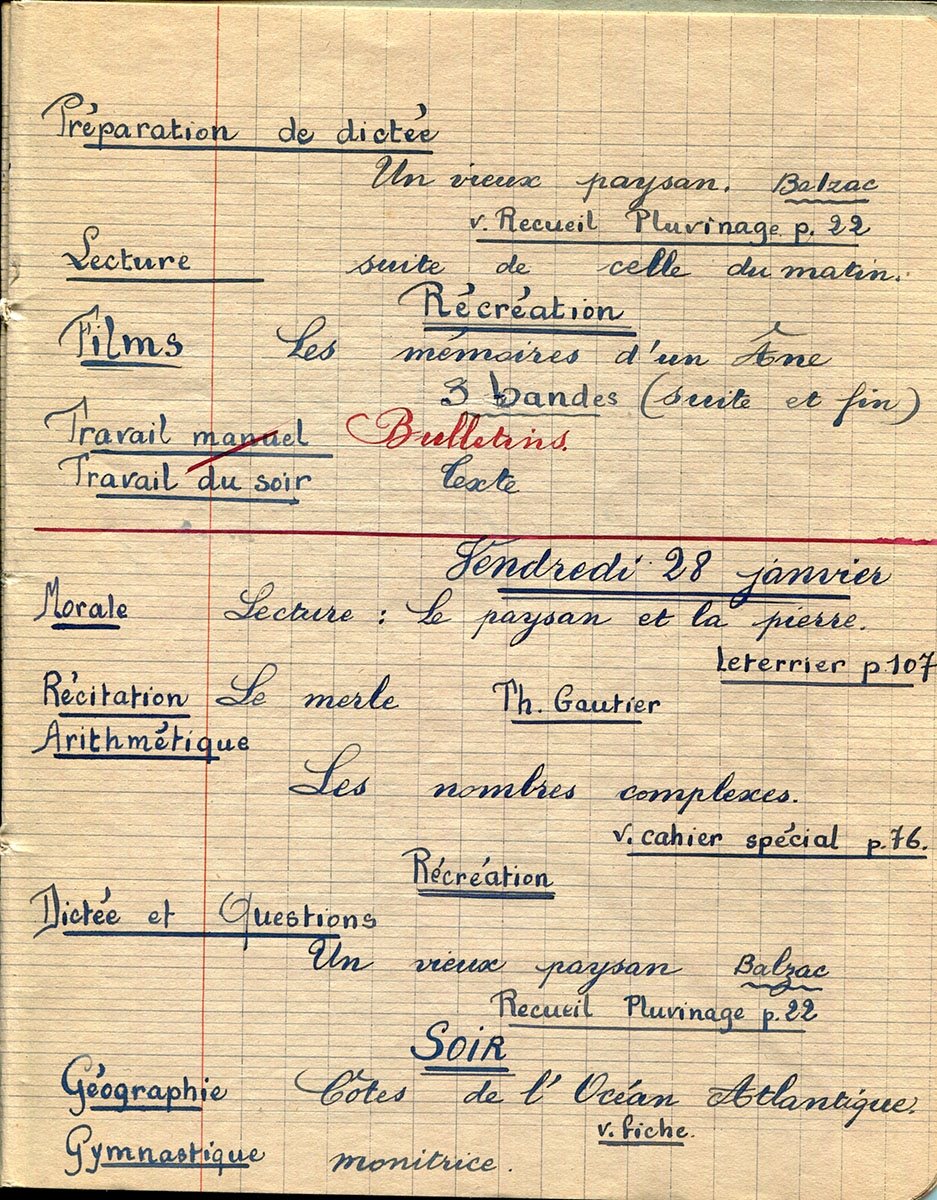 Préparation de dictée
Un vieux paysan. Balzac
v. Recueil Pluvinage p. 22
Lecture suite de celle du matin.
Récréation
Films Les mémoires d'un Âne
3 bandes (suite et fin)
Travail manuel Bulletins.
Travail du soir Texte
Vendredi 28 janvier
Morale Lecture : Le paysan et la pierre.
Leterrier p.107
Récitation Le merle Th. Gautier
Arithmétique
Les nombres complexes.
v. cahier spécial p.76.
Récréation
Dictée et Questions
Un vieux paysan Balzac
Recueil Pluvinage p.22
SOIR
Géographie Côtes de l'Océan Atlantique.
v. fiche.
Gymnastique monitrice.